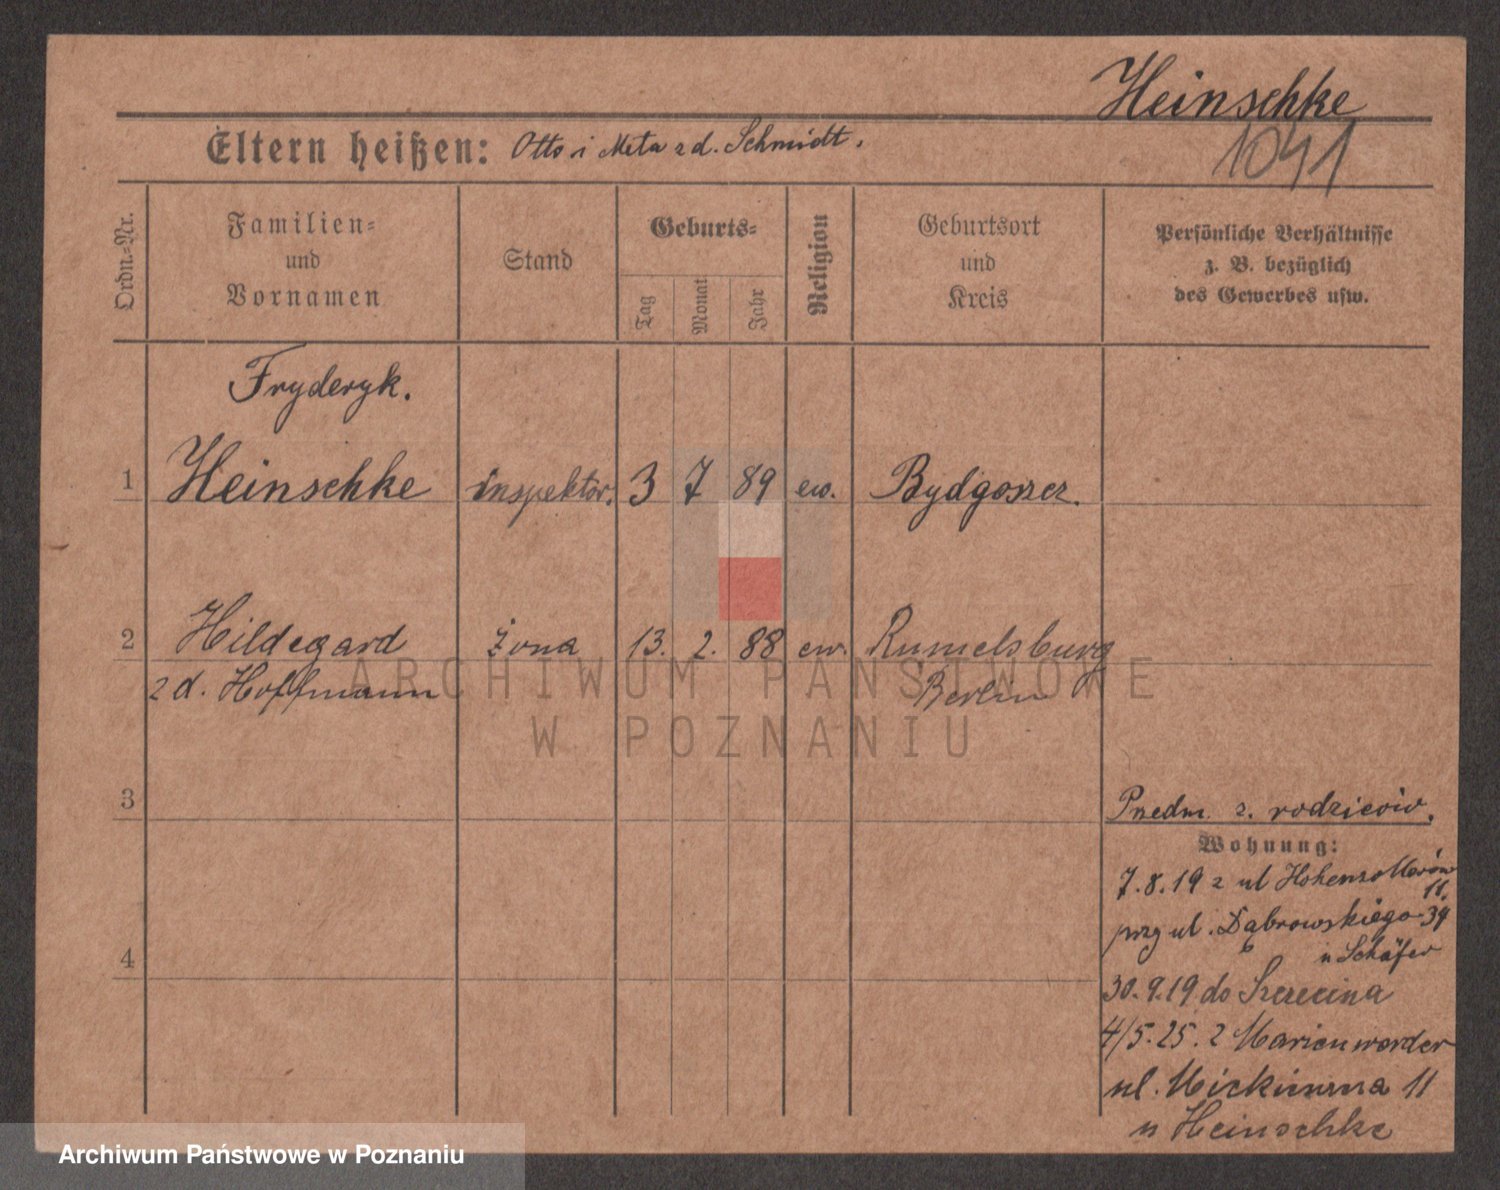 Heinschke
1041
Eltern heißen: Otto i Meta z d. Schmidt.
Ordn.-Nr.
Familien-
und
Vornamen
Stand
Geburts-
Tag
Monat
Jahr
Religion
Geburtsort
und
Kreis
Persönliche Verhältnisse
z. B. bezüglich
des Gewerbes usw.
Fryderyk.
1 Heinschke inspektor. 3 7 89 ew. Bydgoszcz.
2 Hildegard żona 13. 2. 88 ew. Rumelsburg
z d. Hoffmann Berlin
ARCHIWUM PAŃSTWOWE
W POZNANIU
3
Przedm. z. rodziców.
Wohnung:
7.8.19 z ul Hohenzollerów
11.
przy ul. Dąbrowskiego 39
u Schäfer
4
30.9.19 do Szczecina
4/5.25. z Marienwerder
ul. 11
u Heinschke
Archiwum Państwowe w Poznaniu